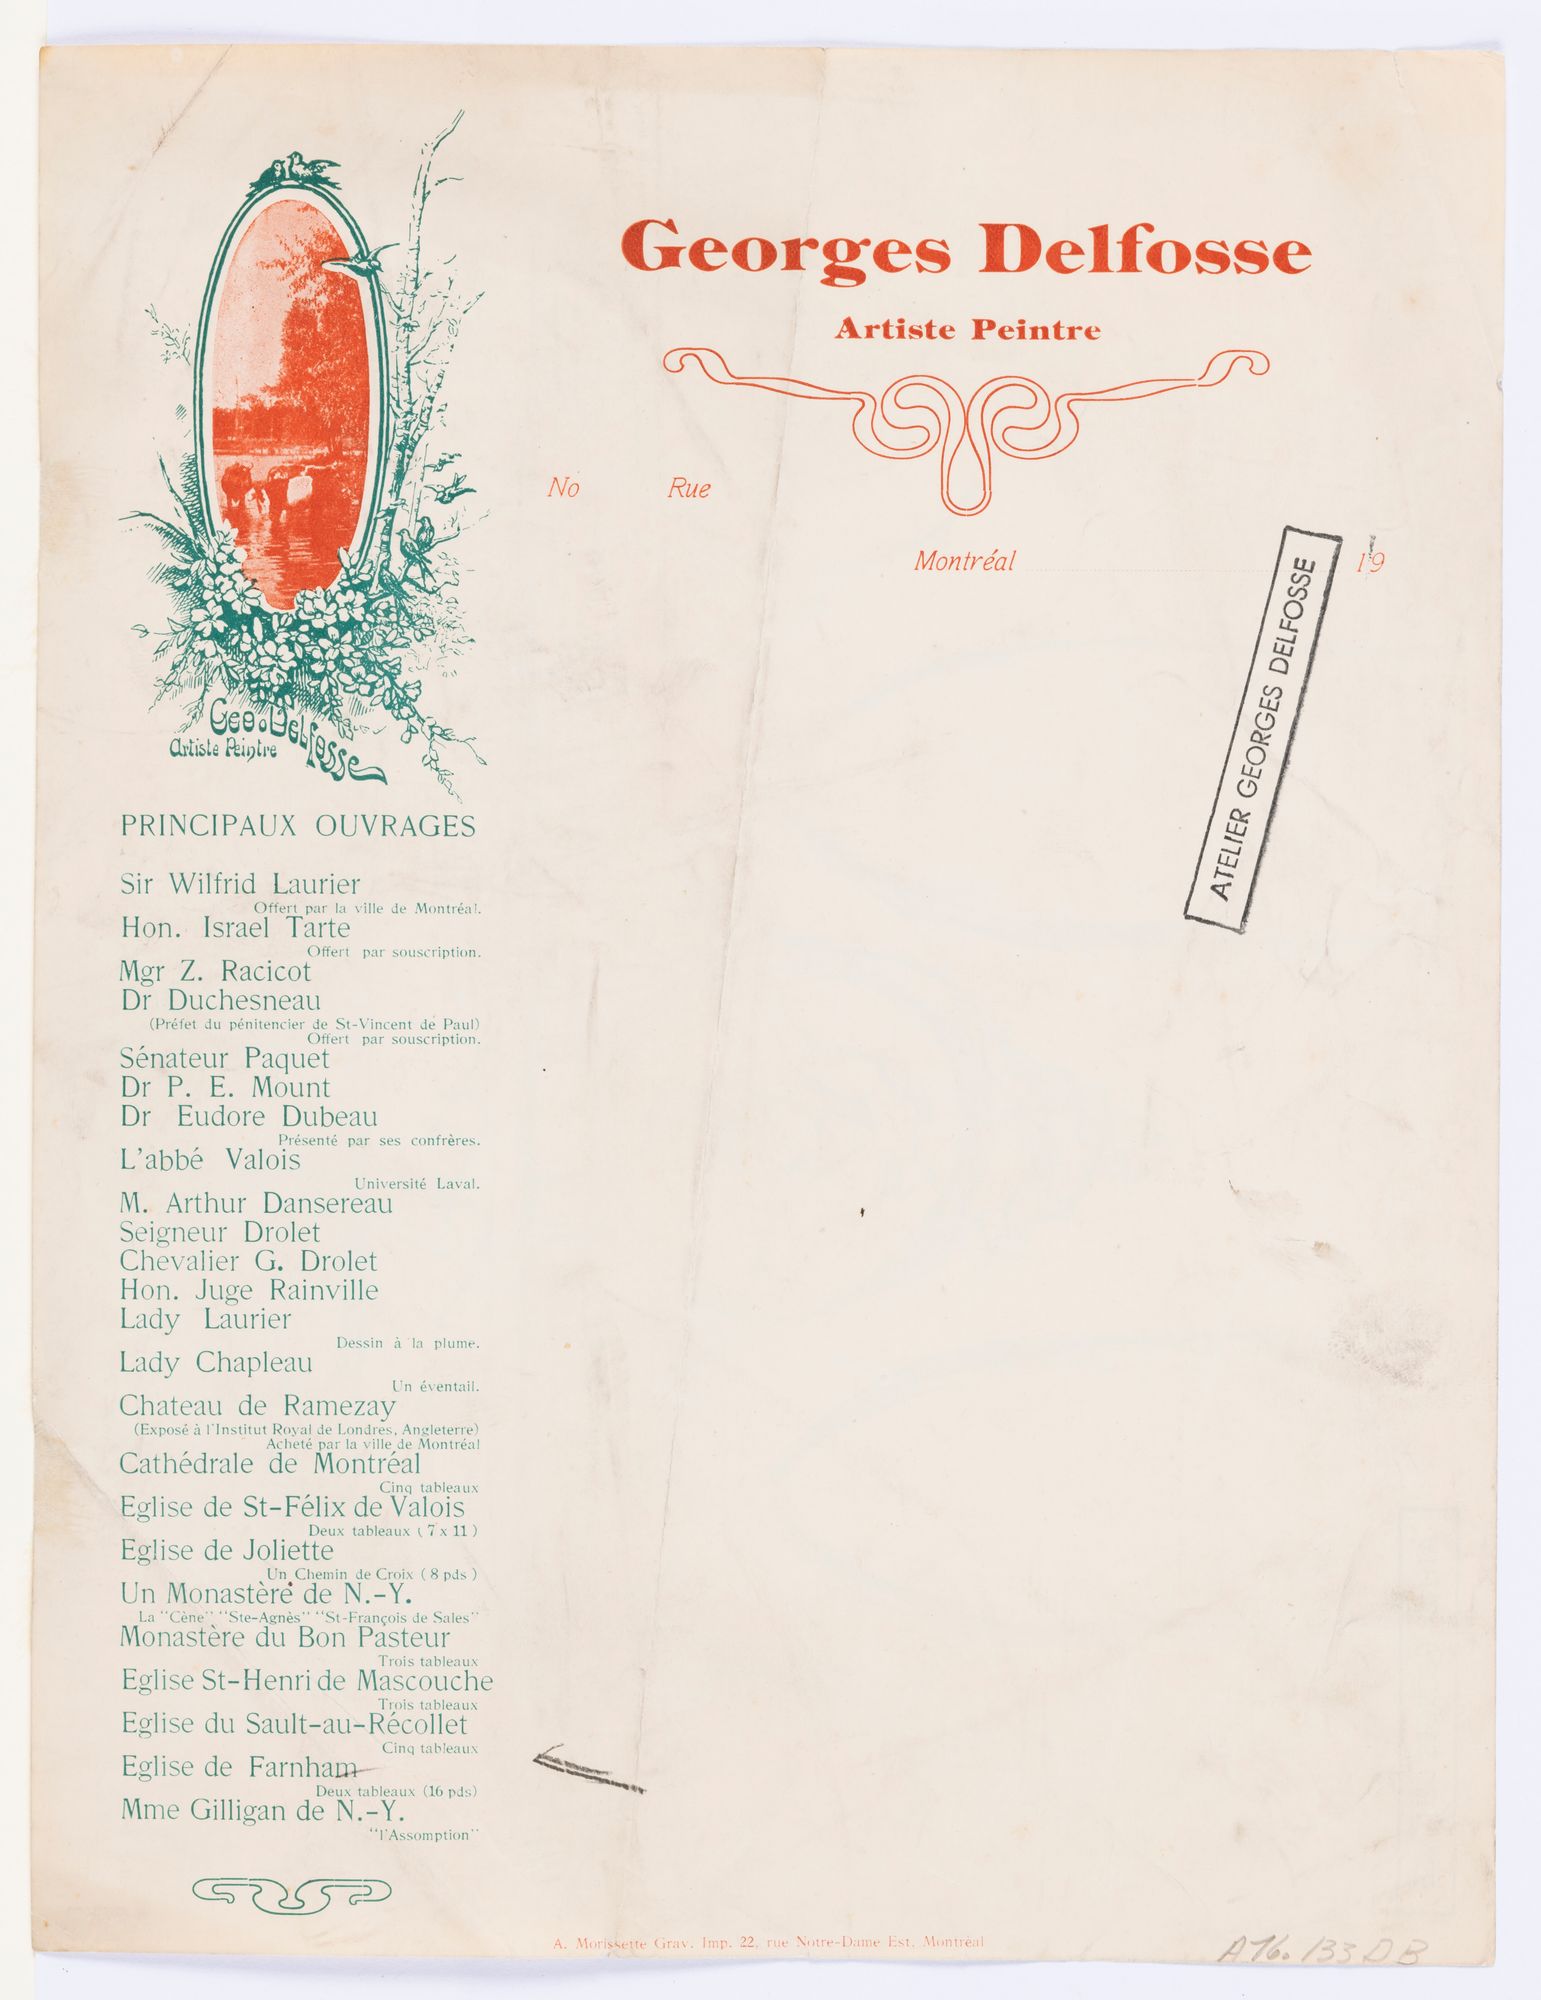 Georges Delfosse
Artiste Peintre
No Rue
Montréal 19
ATELIER GEORGES DELFOSSE
Geo. Delfosse
Artiste Peintre
PRINCIPAUX OUVRAGES
Sir Wilfrid Laurier
Offert par la ville de Montréal.
Hon. Israel Tarte
Offert par souscription.
Mgr Z. Racicot
Dr Duchesneau
(Préfet du pénitencier de St-Vincent de Paul)
Offert par souscription.
Sénateur Paquet
Dr P. E. Mount
Dr Eudore Dubeau
Présenté par ses confrères.
L'abbé Valois
Université Laval.
M. Arthur Dansereau
Seigneur Drolet
Chevalier G. Drolet
Hon. Juge Rainville
Lady Laurier
Dessin à la plume.
Lady Chapleau
Un éventail.
Chateau de Ramezay
(Exposé à l'Institut Royal de Londres, Angleterre)
Acheté par la ville de Montréal
Cathédrale de Montréal
Cinq tableaux
Eglise de St-Félix de Valois
Deux tableaux ( 7 x 11 )
Eglise de Joliette
Un Chemin de Croix ( 8 pds )
Un Monastère de N.-Y.
La "Cène" "Ste-Agnès" "St-François de Sales"
Monastère du Bon Pasteur
Trois tableaux
Eglise St-Henri de Mascouche
Trois tableaux
Eglise du Sault-au-Récollet
Cinq tableaux
Eglise de Farnham
Deux tableaux (16 pds)
Mme Gilligan de N.-Y.
"l'Assomption"
A. Morissette Grav. Imp. 22, rue Notre-Dame Est, Montréal
A76.133 D B